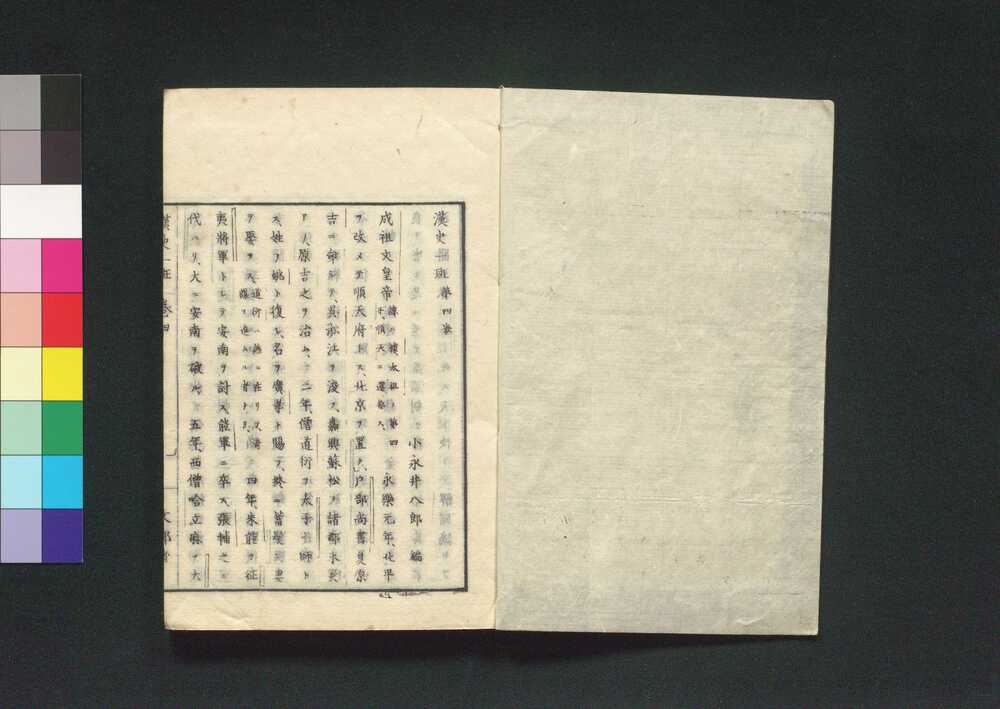 漢史一班第四巻
小永井八郎 編
成祖文皇帝 諱ハ棣太祖ノ第四子、順天ニ還都ス、永樂元年、北平
ヲ改メテ順天府トス、北京ヲ置ク、戸部尚書夏原
吉ニ命シテ、呉淞江ヲ浚ス、嘉興蘇松ノ諸郡水災
アリ、原吉之ヲ治ム、二年、僧道衍ヲ太子少師ト
ス、姓ヲ姚ト復シ、名ヲ廣孝ト賜フ、終ニ蓄髮
四年、朱能ヲ征
夷將軍トシテ安南ヲ討ス、能軍ニ卒ス、張輔之ニ
代ハリ、大ニ安南ヲ破ル、五年、西僧哈立麻ヲ大
漢史一班 巻四 文部省